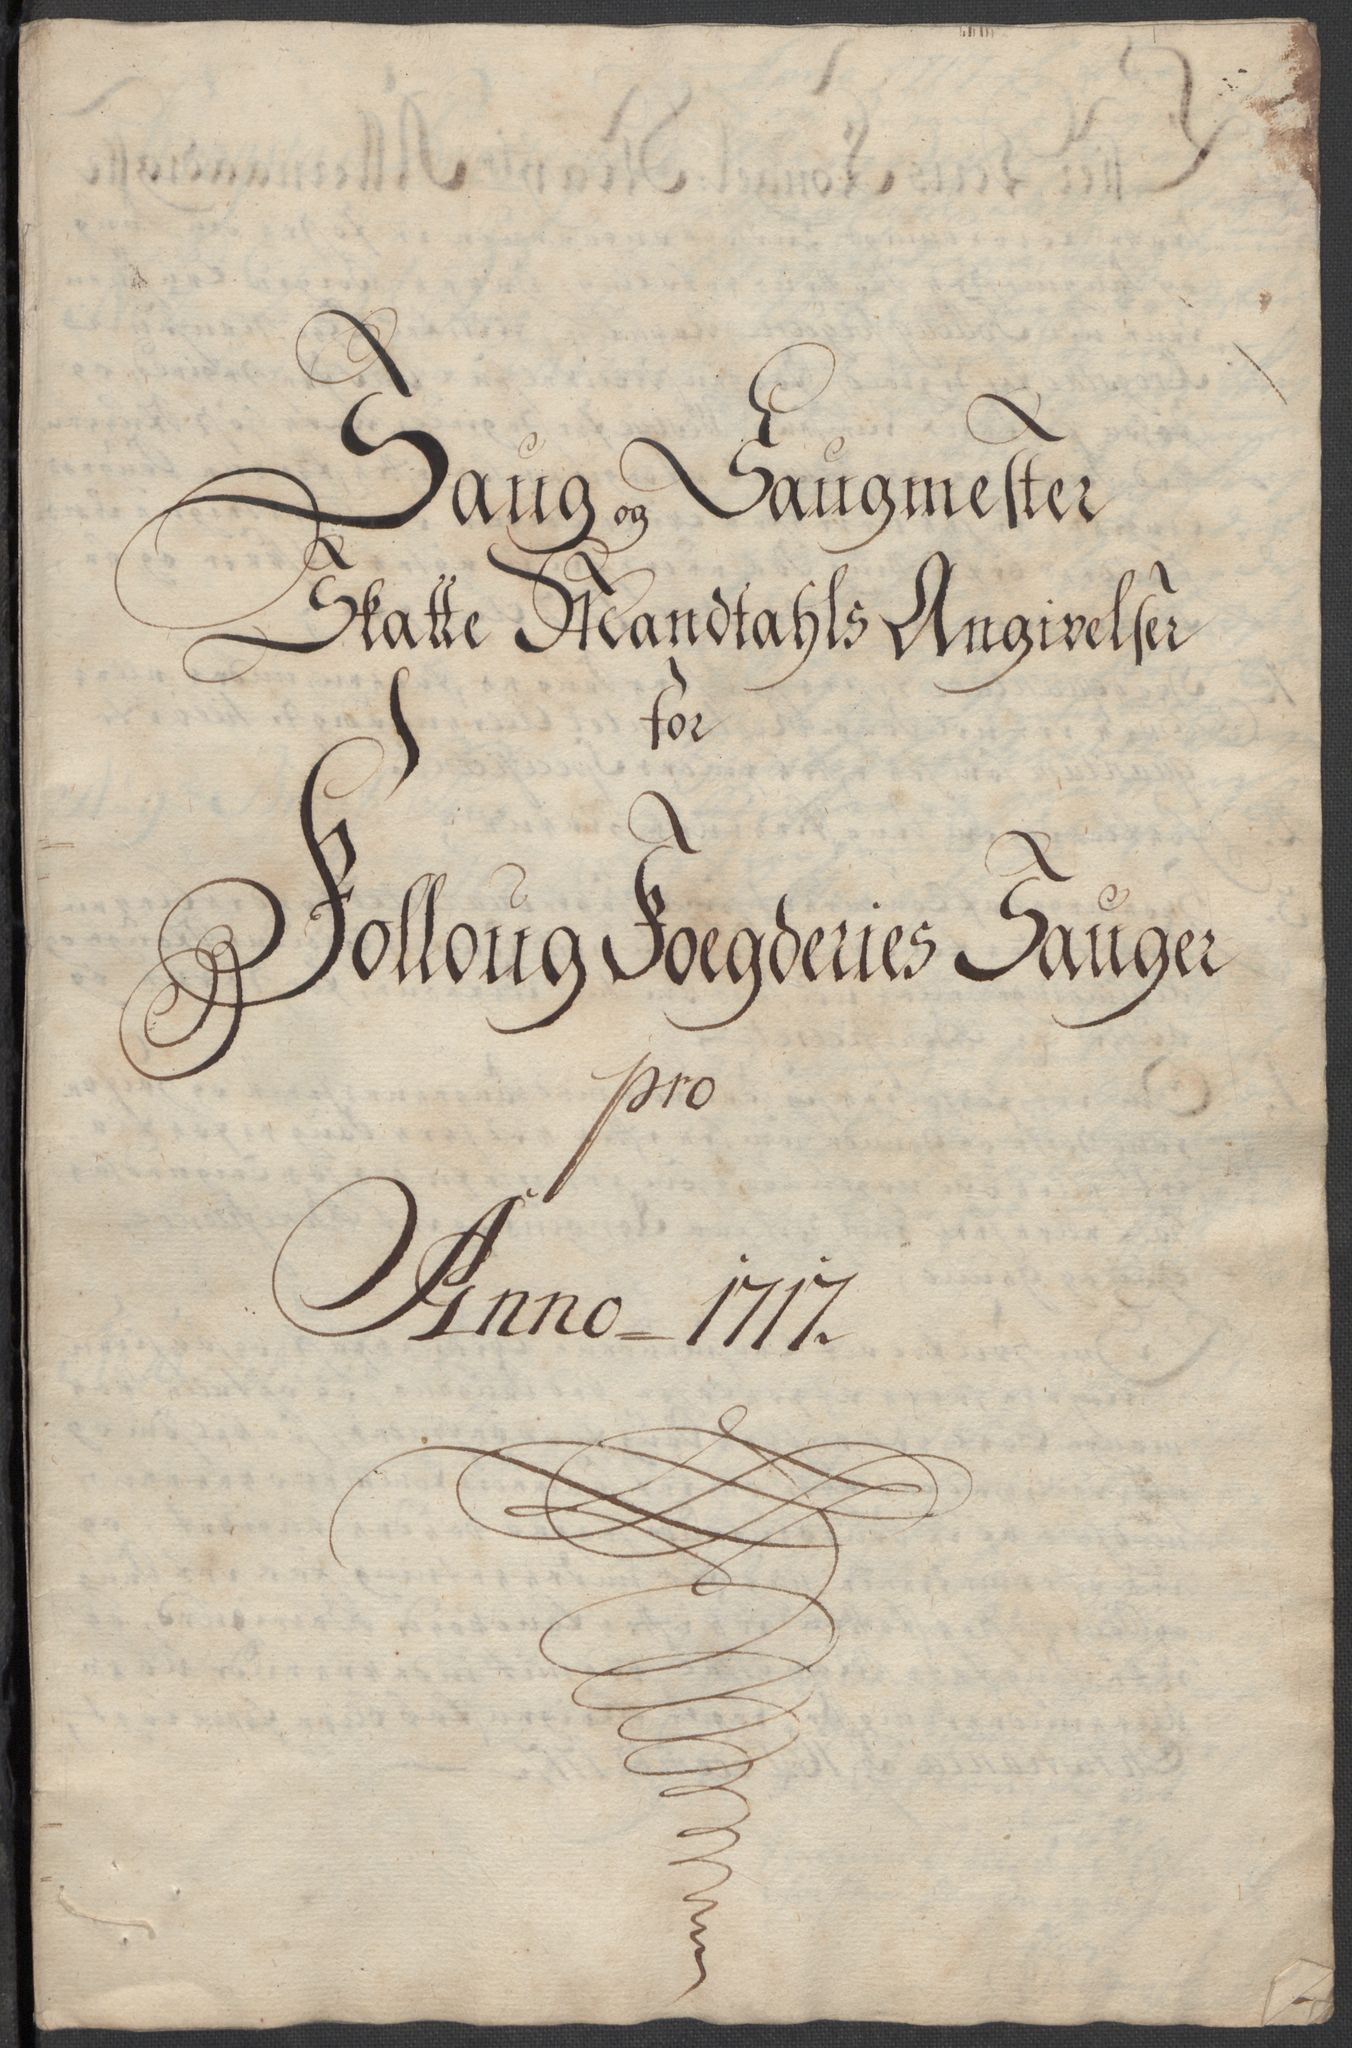 Saug og Saugmester
Skatte Mandtahls Angivelser
for
Folloug Foegderies Sauger
pro
Anno 1717.